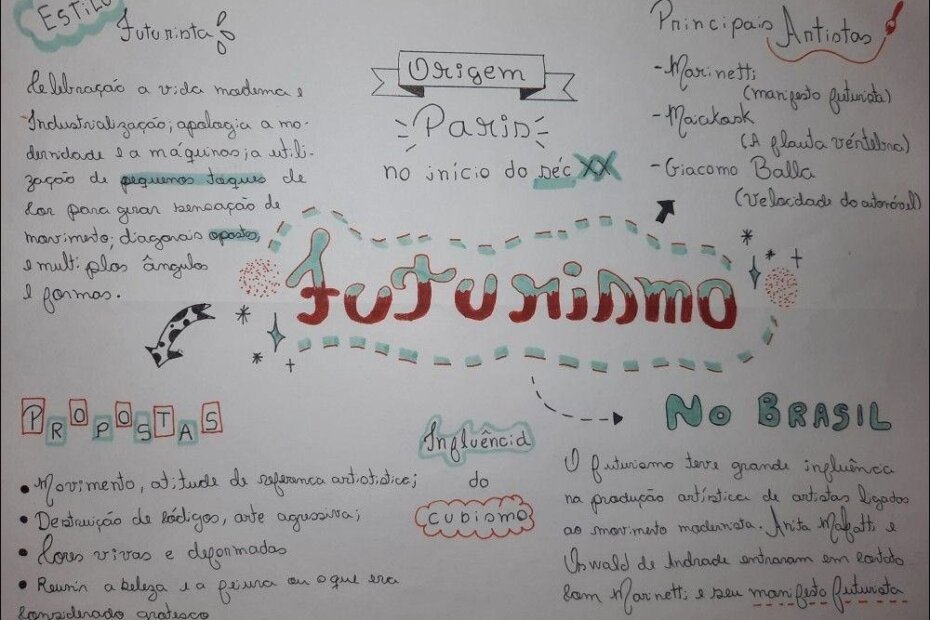 Estilo
Futurista
Celebração a vida moderna e
Industrialização; apologia a mo-
dernidade e a máquinas; a utili-
zação de pequenos toques de
cor para gerar sensação de
movimento; diagonais opostas,
e multiplos ângulos
e formas.
Origem
Paris
no início do séc XX
Principais Artistas
- Marinetti
(manifesto futurista)
- Maiakosk
(A flauta vértebra)
- Giacomo Balla
(Velocidade do automóvel)
Futurismo
PROPOSTAS
• Movimento, atitude de referenca artististica;
• Destruição de códigos, arte agressiva;
• Cores vivas e deformadas
• Reunir a beleza e a feiura ou o que era
considerado grotesco
Influência
do
cubismo
No BRASIL
O futurismo teve grande influência
na produção artística de artistas ligados
ao movimento modernista. Anita Mafatti e
Oswald de Andrade entraram em contato
com Marinetti e seu manifesto futurista